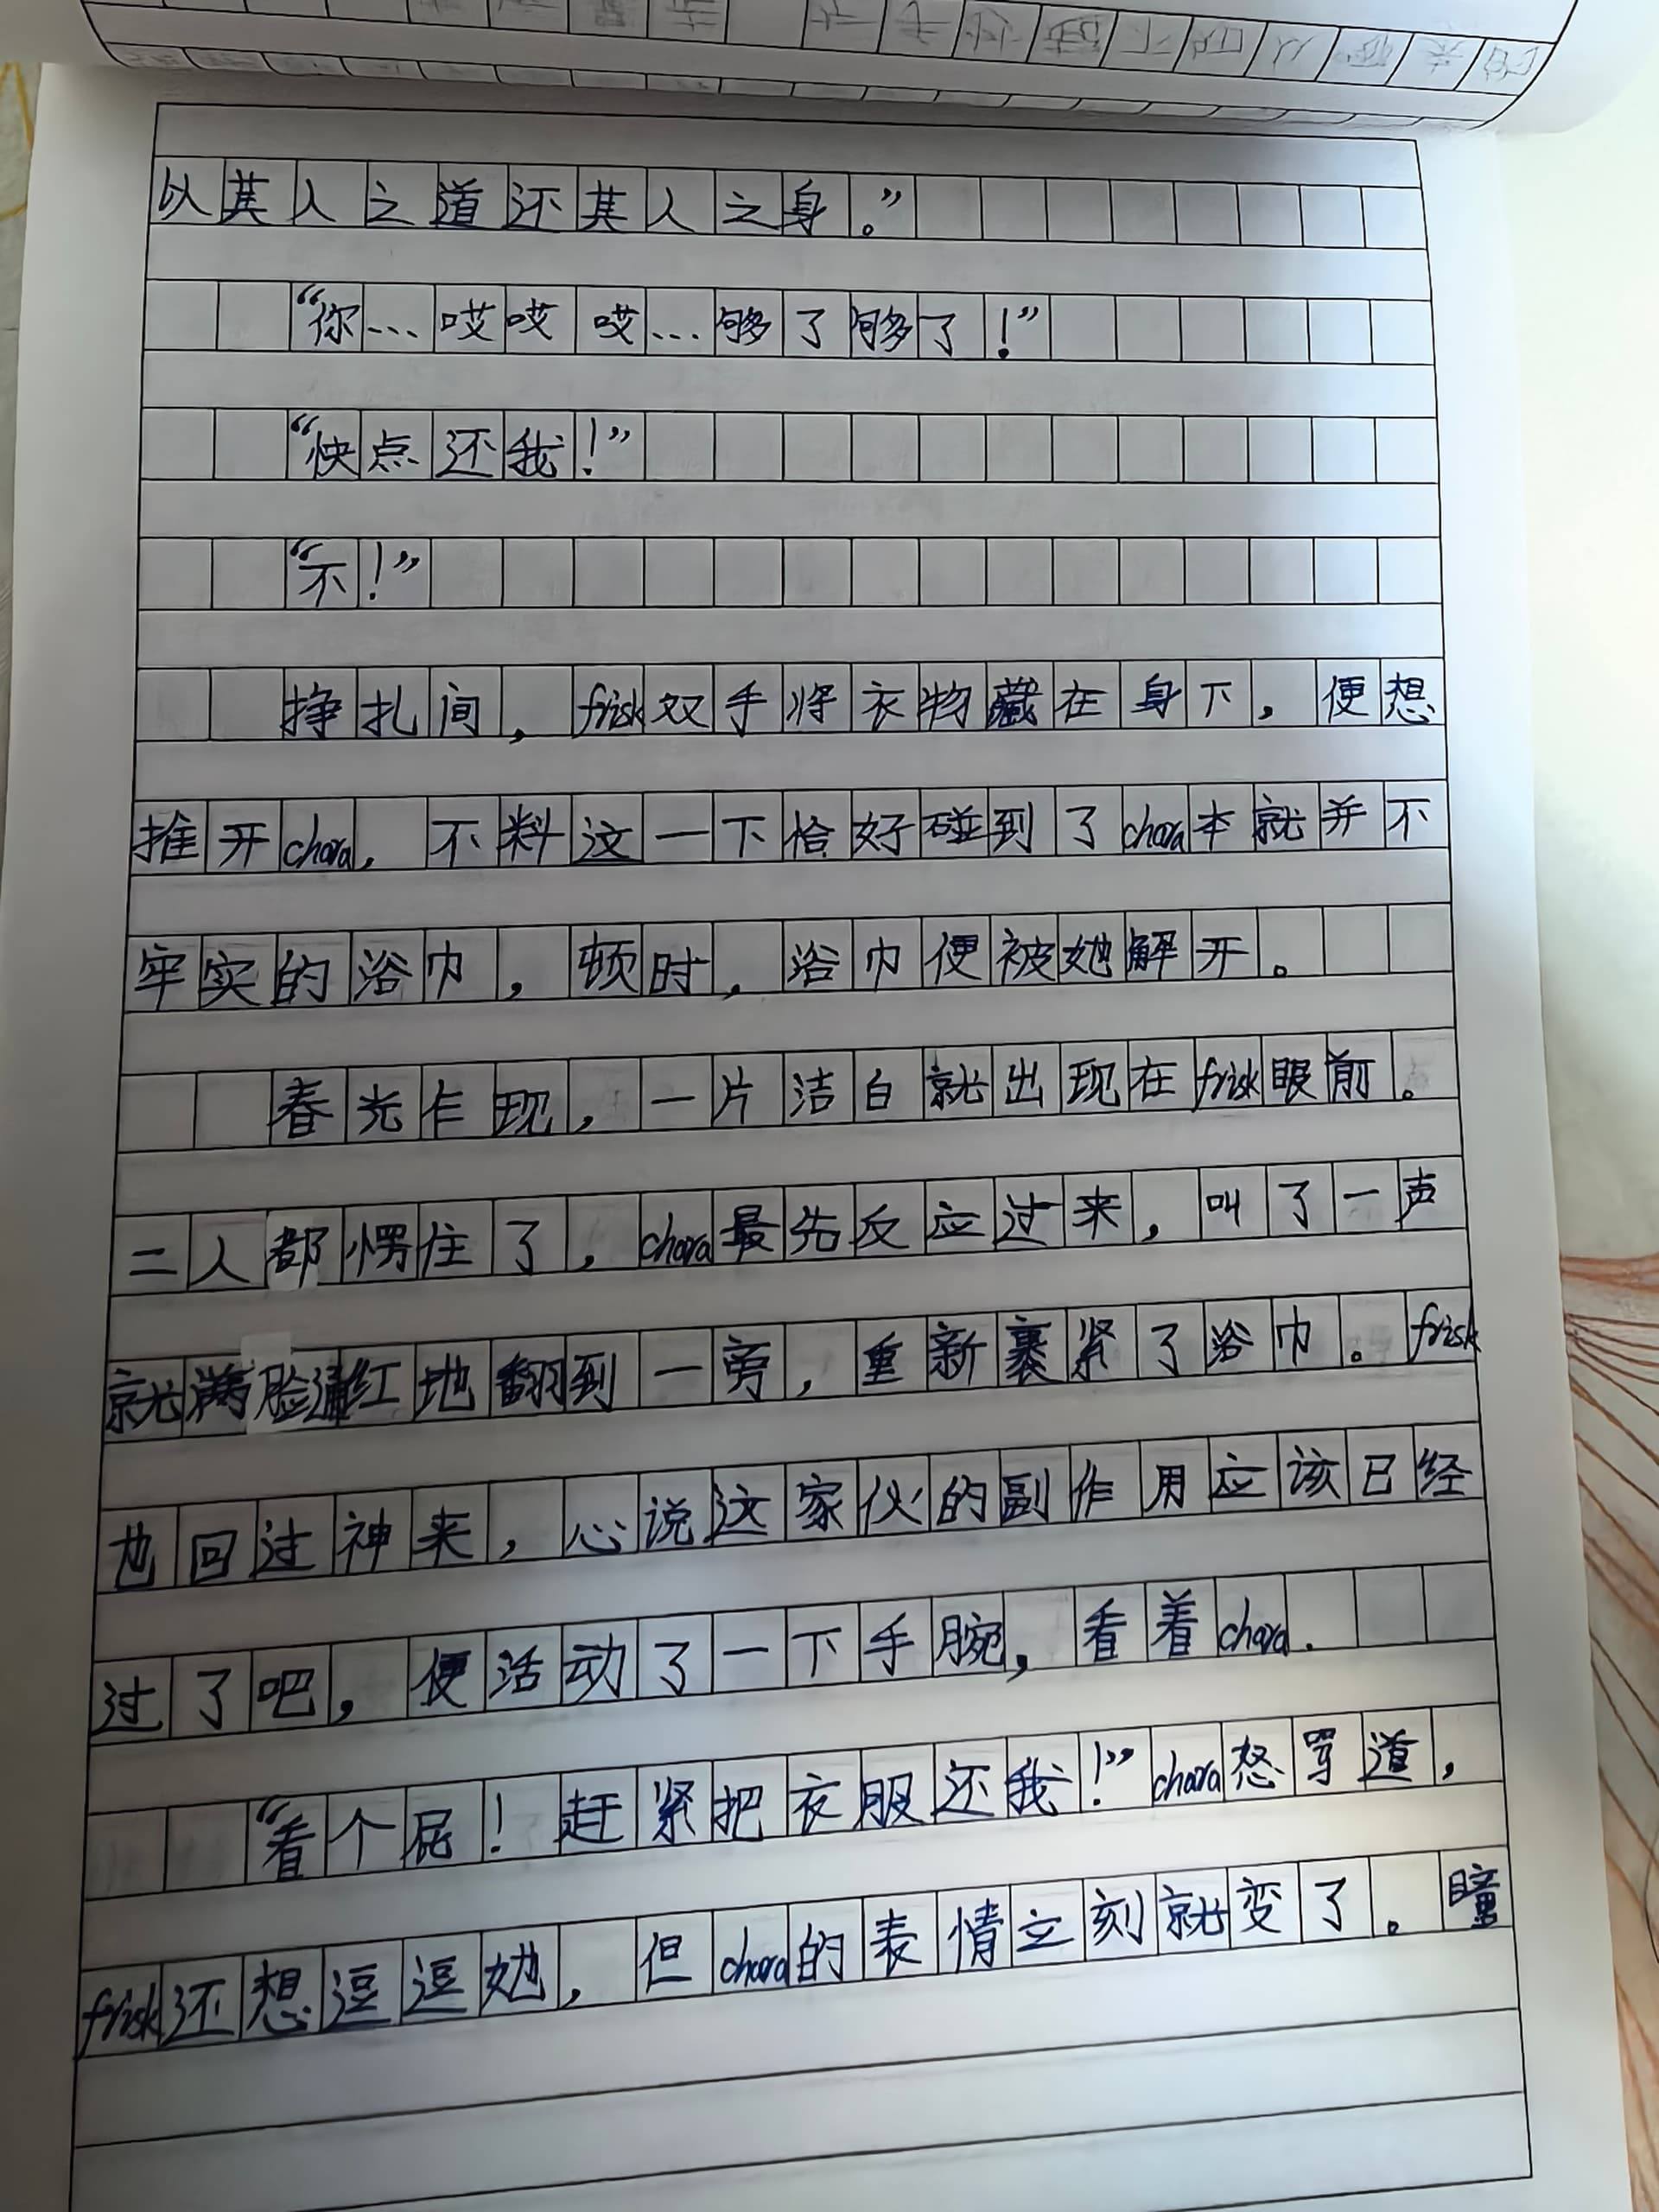 以其人之道还其人之身。”
“你…哎哎哎…够了够了！”
“快点还我！”
“不！”
挣扎间，frisk双手将衣物藏在身下，便想
推开chara，不料这一下恰好碰到了chara本就并不
牢实的浴巾，顿时，浴巾便被她解开。
春光乍现，一片洁白就出现在frisk眼前。
二人都愣住了，chara最先反应过来，叫了一声
就满脸通红地翻到一旁，重新裹紧了浴巾。frisk
也回过神来，心说这家伙的副作用应该已经
过了吧，便活动了一下手腕，看着chara.
“看个屁！赶紧把衣服还我！”chara怒骂道，
frisk还想逗逗她，但chara的表情立刻就变了。瞳